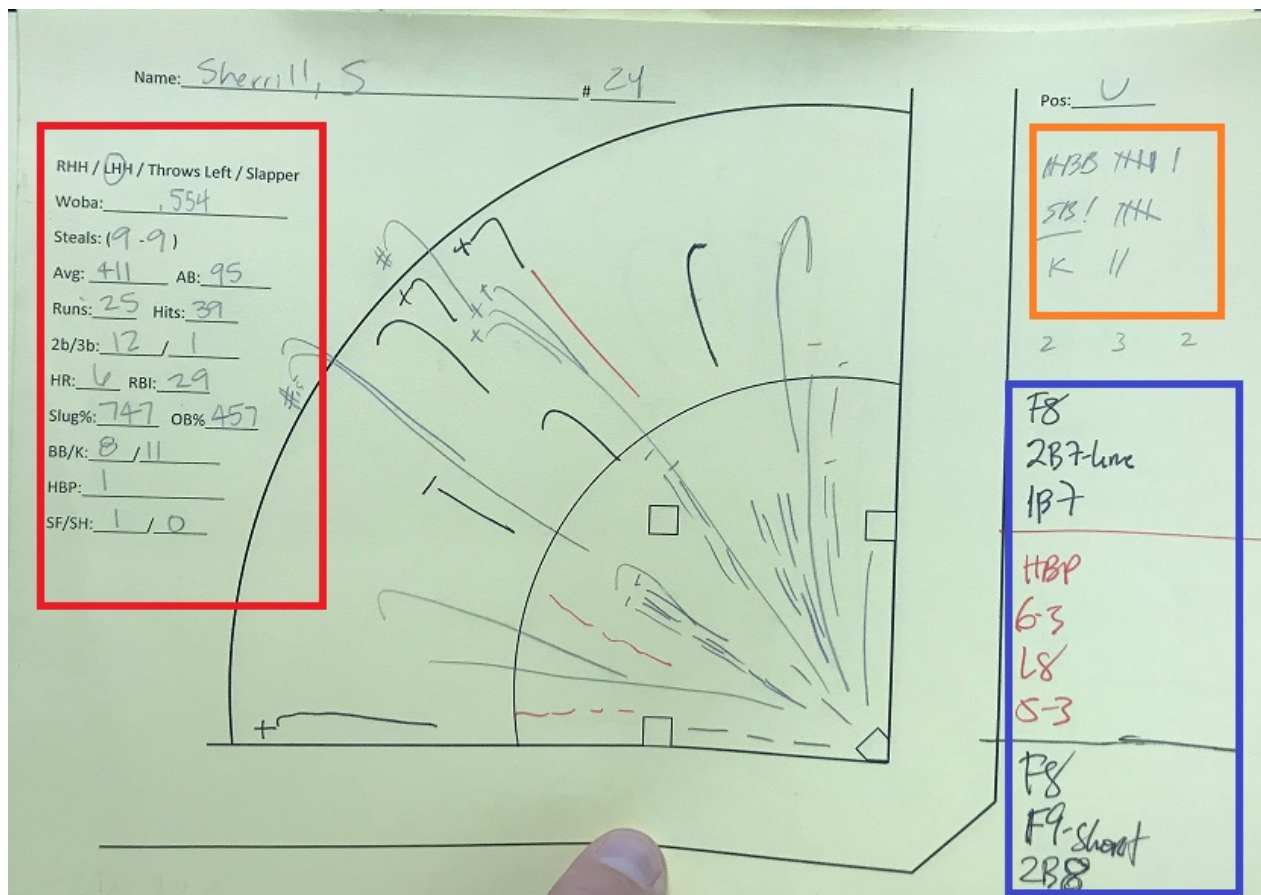 Name: Sherrill, S # 24
Pos: U
RHH / LHH / Throws Left / Slapper
Woba: .554
Steals: (9-9)
Avg: 411 AB: 95
Runs: 25 Hits: 39
2b/3b: 12 / 1
HR: 6 RBI: 29
Slug%: 747 OB% 457
BB/K: 8 / 11
HBP: 1
SF/SH: 1 / 0
BB
SB!
K
2 3 2
F8
2B7-line
1B7
HBP
6-3
L8
5-3
F8
F9-short
2B8